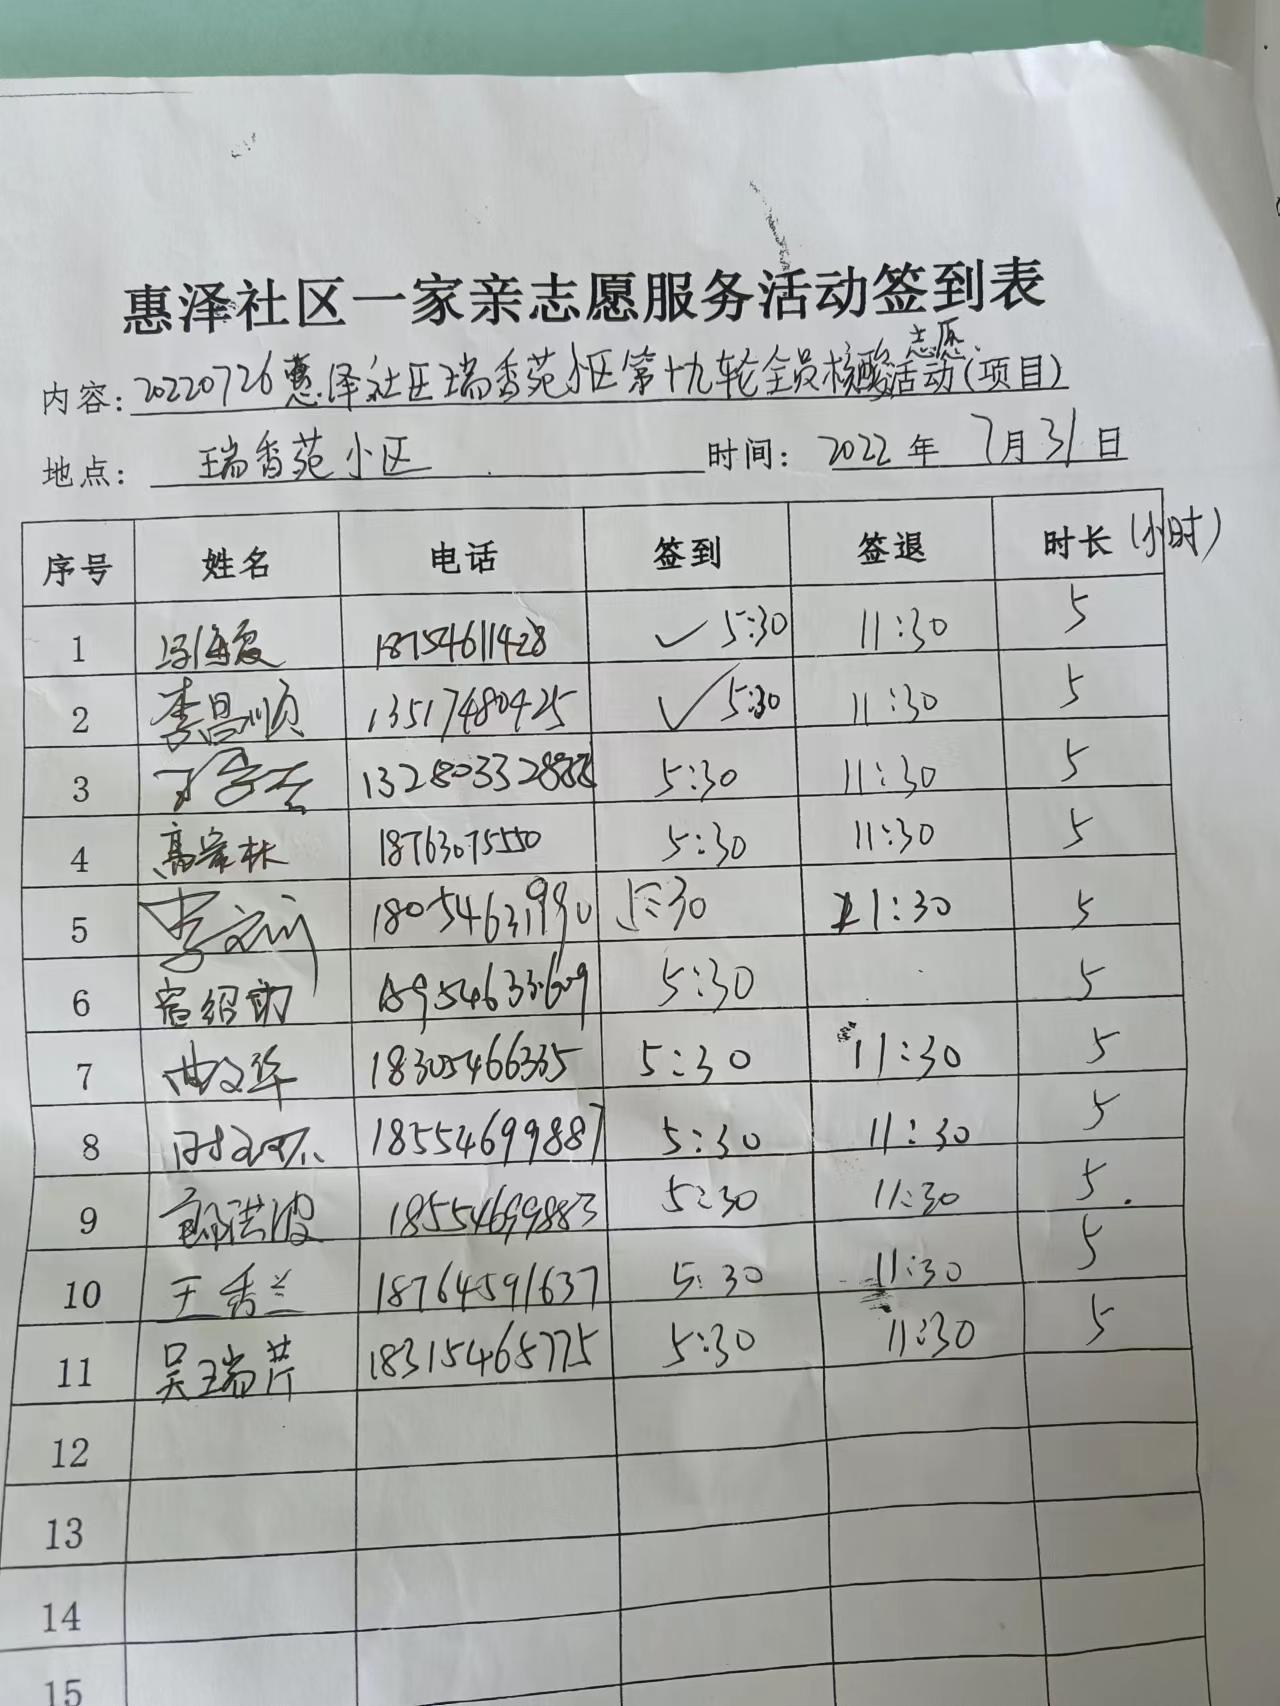 惠泽社区一家亲志愿服务活动签到表
内容：20220726惠泽社区瑞香苑小区第十九轮全员核酸志愿活动(项目)
地点： 瑞香苑小区 时间： 2022年 7月31日
序号 姓名 电话 签到 签退 时长(小时)
1 18754611428 ✓5:30 11:30 5
2 李昌顺 13517480425 ✓5:30 11:30 5
3 5:30 11:30 5
4 高 林 18763075550 5:30 11:30 5
5 李 5:30 11:30 5
6 5:30 5
7 曲文华 18305466335 5:30 11:30 5
8 18554699887 5:30 11:30 5
9 郭洪波 18554699883 5:30 11:30 5
10 王秀兰 18764591637 5:30 11:30 5
11 吴瑞芹 18315465775 5:30 11:30 5
12
13
14
15